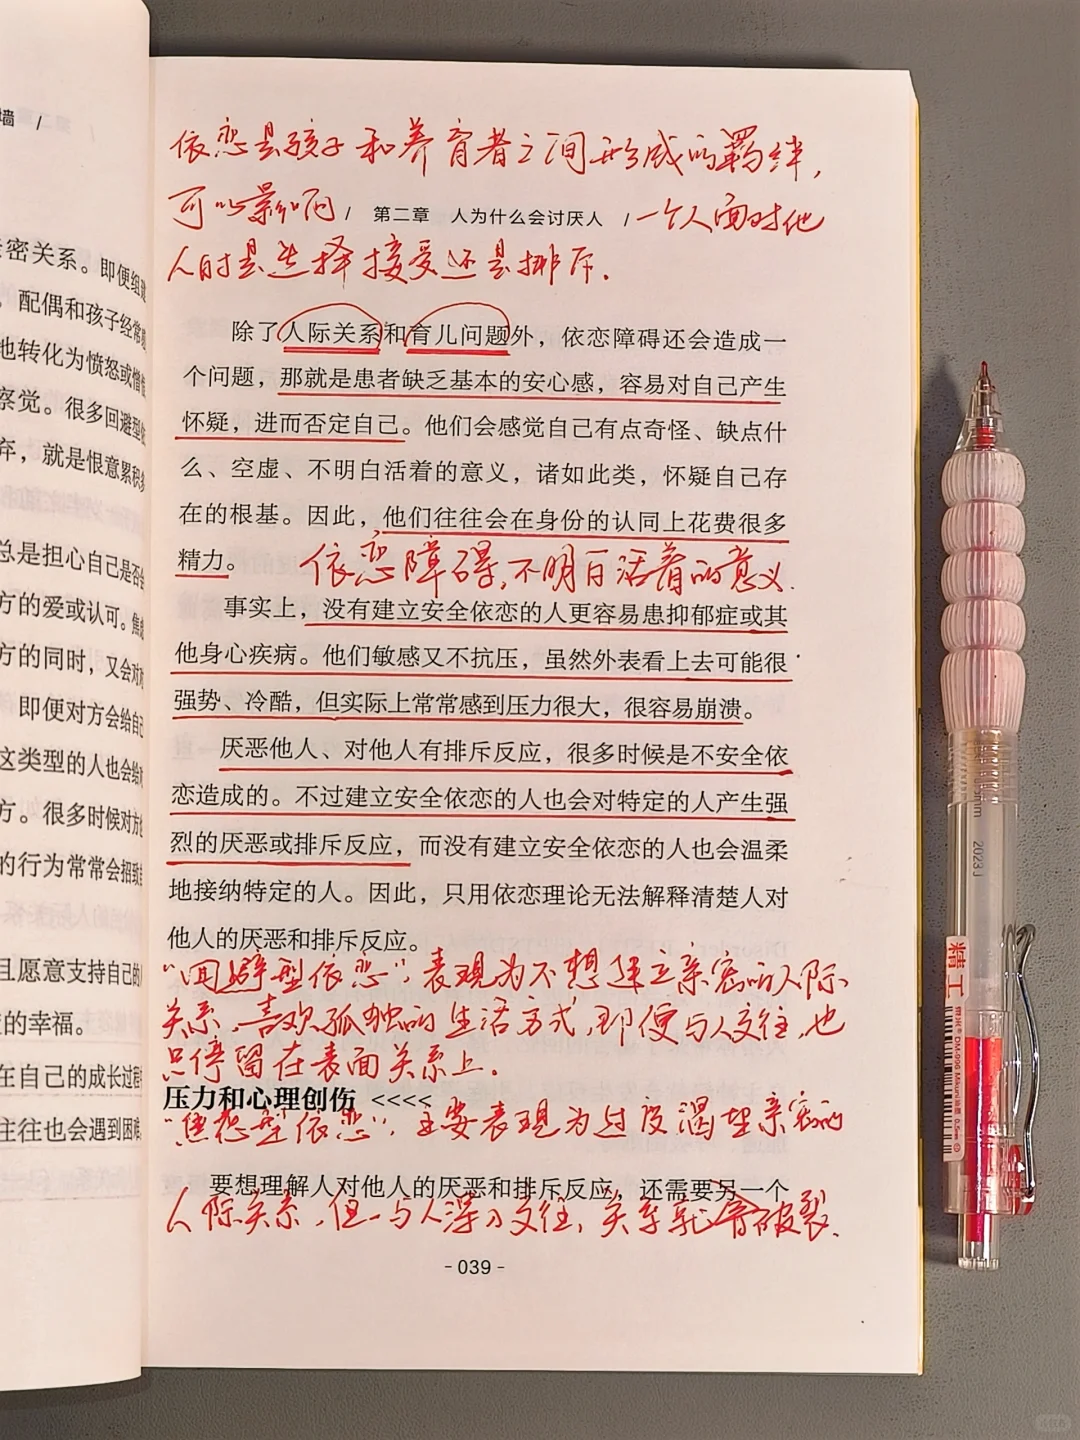 墙 /
密关系。即便组建
，配偶和孩子经常
地转化为愤怒或憎
察觉。很多回避型
弃，就是恨意累积
总是担心自己是否会
方的爱或认可。焦虑
方的同时，又会对
即便对方会给自己
这类型的人也会给
方。很多时候对方
的行为常常会招致
且愿意支持自己的
的幸福。
在自己的成长过程
主往也会遇到困难
依恋是孩子和养育者之间形成的羁绊，
可以影响 / 第二章 人为什么会讨厌人 / 一个人面对他
人时是选择接受还是排斥.
除了人际关系和育儿问题外，依恋障碍还会造成一
个问题，那就是患者缺乏基本的安心感，容易对自己产生
怀疑，进而否定自己。他们会感觉自己有点奇怪、缺点什
么、空虚、不明白活着的意义，诸如此类，怀疑自己存
在的根基。因此，他们往往会在身份的认同上花费很多
精力。 依恋障碍,不明白活着的意义.
事实上，没有建立安全依恋的人更容易患抑郁症或其
他身心疾病。他们敏感又不抗压，虽然外表看上去可能很
强势、冷酷，但实际上常常感到压力很大，很容易崩溃。
厌恶他人、对他人有排斥反应，很多时候是不安全依
恋造成的。不过建立安全依恋的人也会对特定的人产生强
烈的厌恶或排斥反应，而没有建立安全依恋的人也会温柔
地接纳特定的人。因此，只用依恋理论无法解释清楚人对
他人的厌恶和排斥反应。
"回避型依恋"，表现为不想建立亲密的人际
关系，喜欢孤独的生活方式，即便与人交往，也
只停留在表面关系上.
压力和心理创伤 <<<<
"焦虑型依恋"，主要表现为过度渴望亲密的
要想理解人对他人的厌恶和排斥反应，还需要另一个
人际关系，但一与人深入交往，关系就会破裂.
- 039 -
2023 J
精工